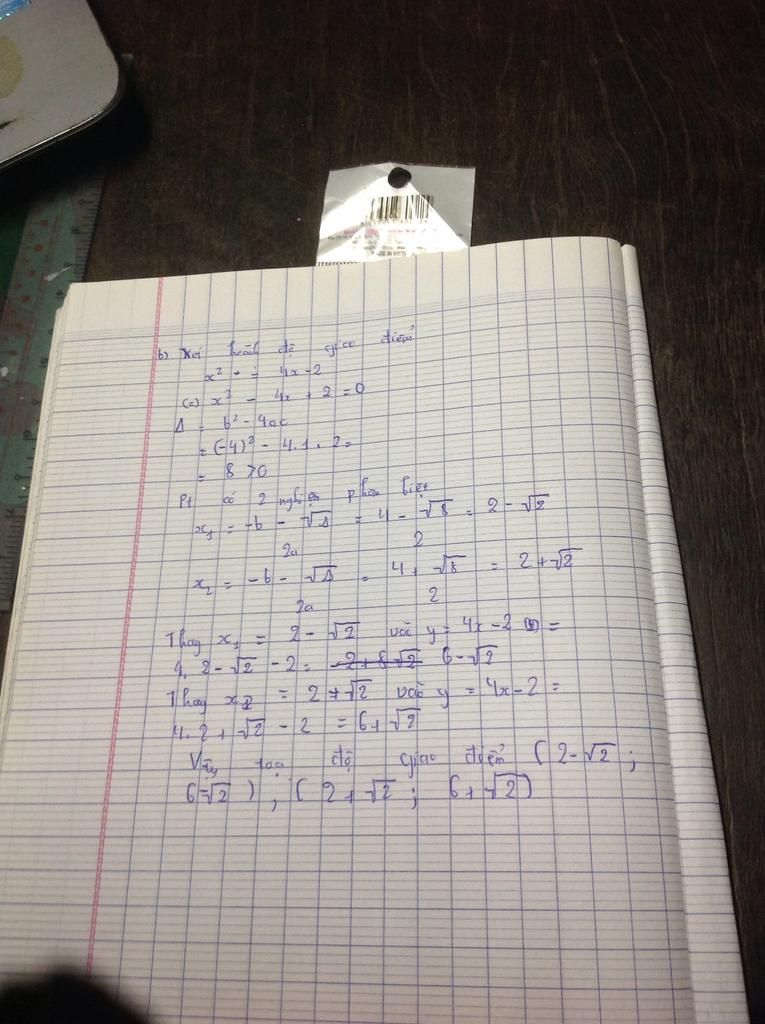 b) Xét hoành độ giao điểm
x² = 4x-2
(=) x² - 4x + 2 = 0
Δ = b² - 4ac
= (-4)² - 4.1.2=
= 8 >0
Pt có 2 nghiệm phân biệt
x₁ = -b - √Δ / 2a = 4 - √8 / 2 = 2 - √2
x₂ = -b - √Δ / 2a = 4 + √8 / 2 = 2 + √2
Thay x₁ = 2 - √2 vào y = 4x - 2 =
4. 2 - √2 - 2 = 6 - √2
Thay x₂ = 2 + √2 vào y = 4x - 2 =
4. 2 + √2 - 2 = 6 + √2
Vậy tọa độ giao điểm ( 2 - √2 ;
6 - √2 ) ; ( 2 + √2 ; 6 + √2 )